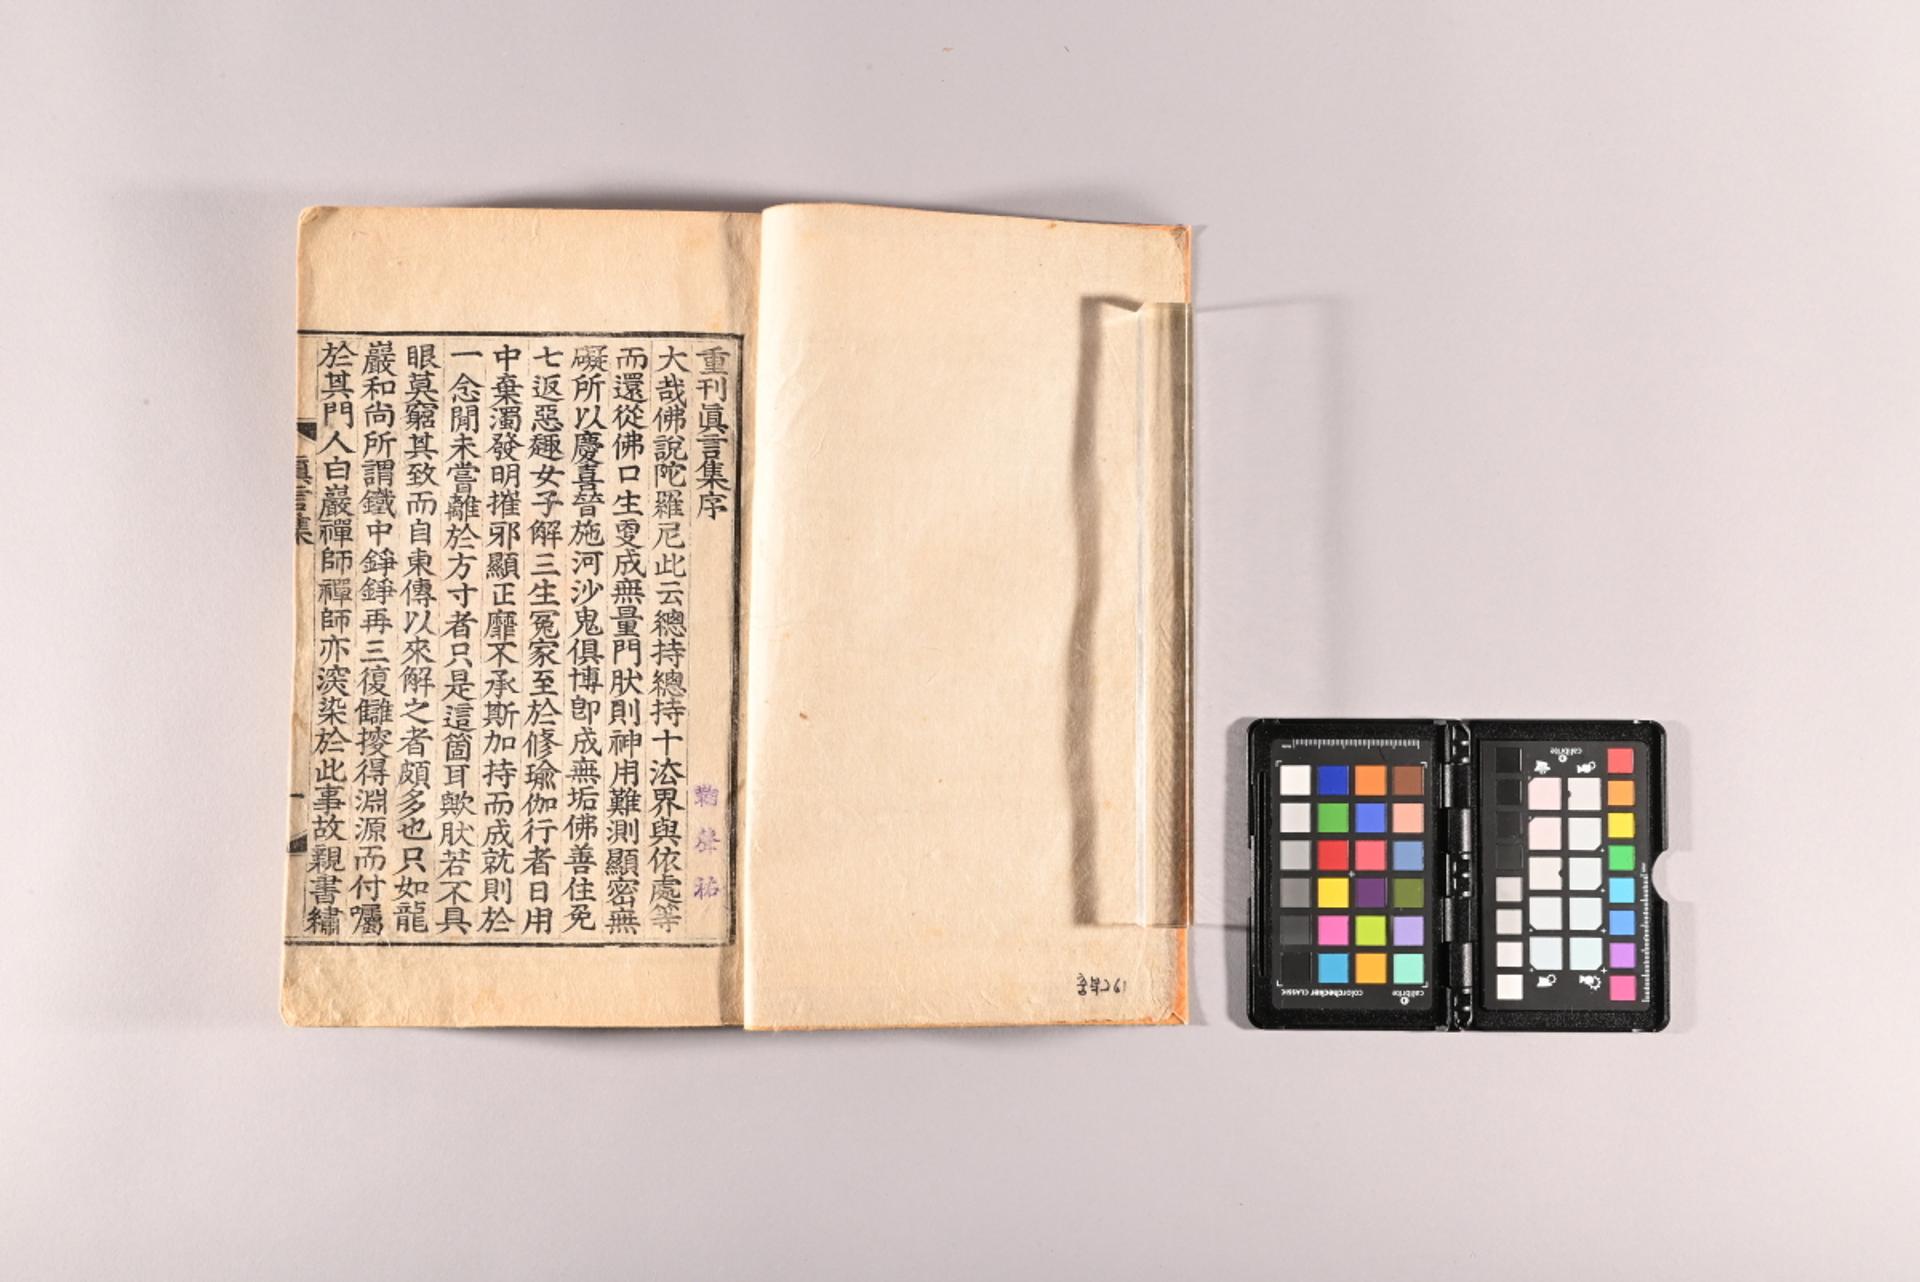 重刊眞言集序
大哉佛說陀羅尼此云總持總持十法界與依處等
而還從佛口生雯成無量門肰則神用難測顯密無
礙所以慶喜暜施河沙鬼俱博卽成無垢佛善住免
七返惡趣女子解三生冤家至於修瑜伽行者日用
中棄濁發明摧邪顯正靡不承斯加持而成就則於
一念閒未嘗離於方寸者只是這箇耳歟肰若不具
眼莫窮其致而自東傳以來解之者頗多也只如龍
巖和尚所謂鐵中錚錚再三復讎得淵源而付囑
於其門人白巖禪師禪師亦深染於此事故親書繡
眞言集
一
calibrite
colorchecker CLASSIC
calibrite